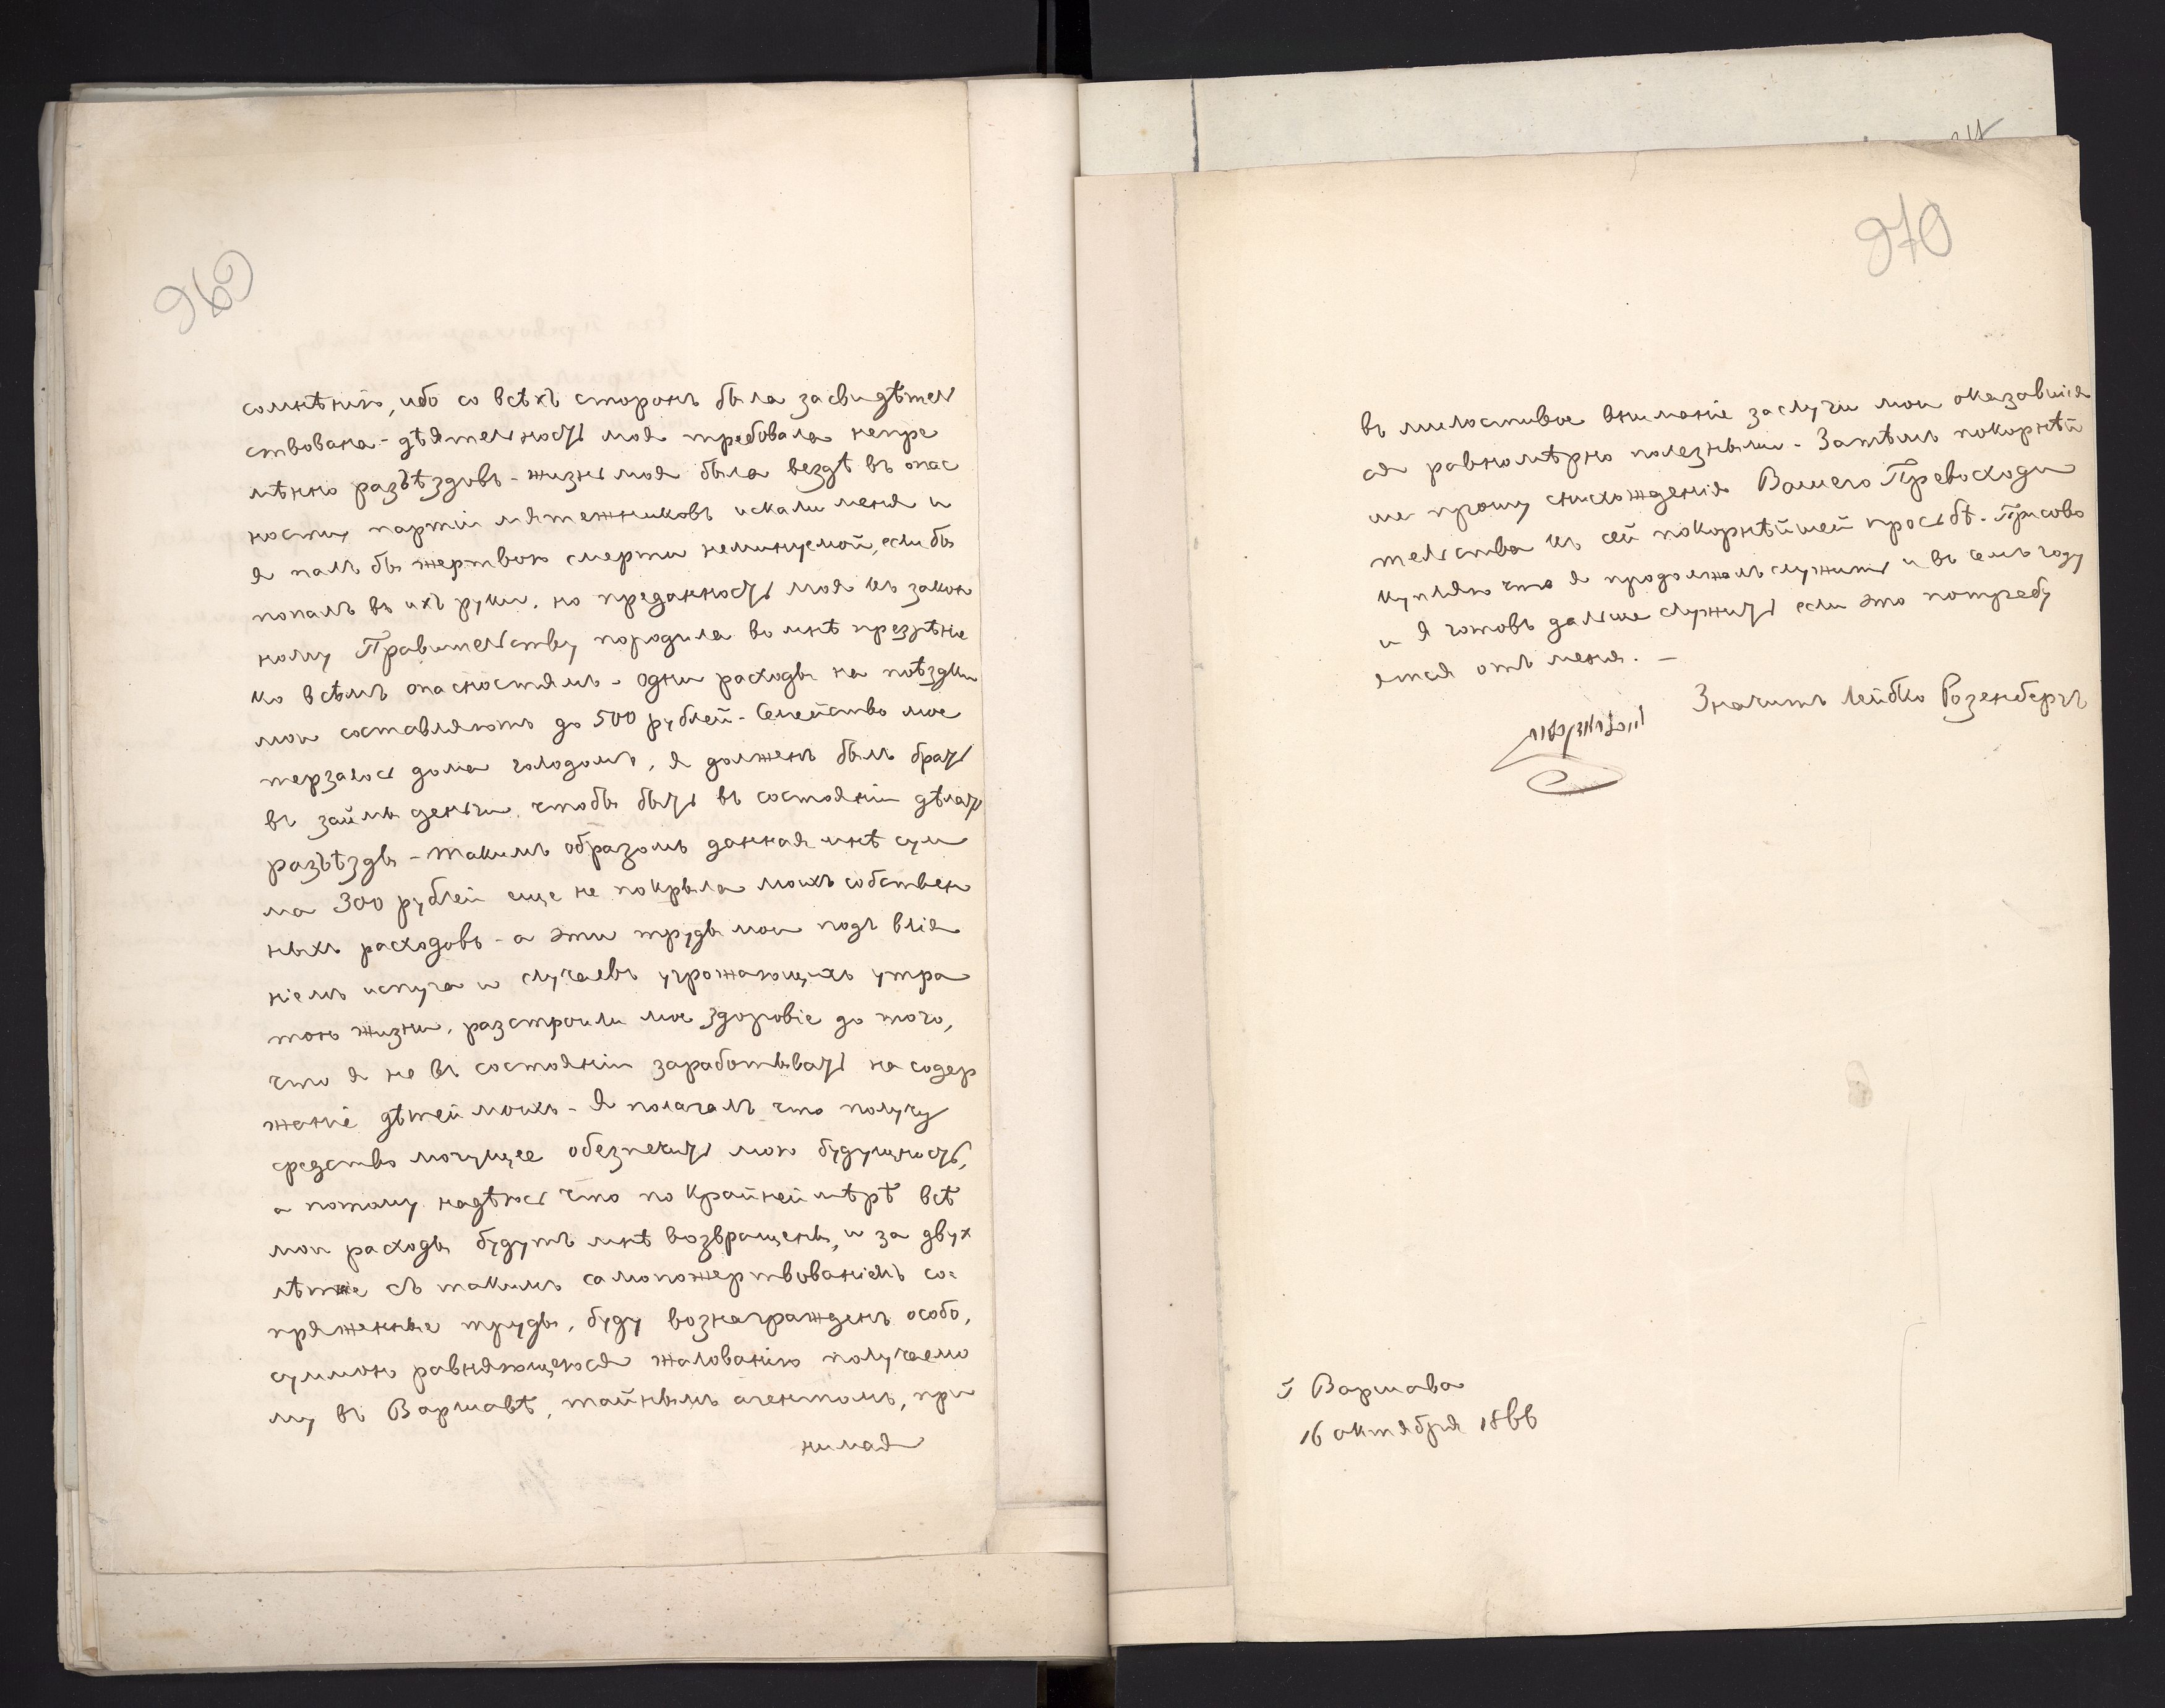 969
сомнѣнію, ибо со всѣхъ сторонъ была засвидѣтел
ствована - дѣятельность моя требовала непре
мѣнно разъѣздовъ - жизнь моя была вездѣ въ опас
ности, партіи мятежниковъ искали меня и
я палъ бы жертвою смерти неминуемой, если бы
попалъ въ ихъ руки, но преданность моя къ закон
ному Правительству породила во мнѣ презрѣніе
ко всѣмъ опасностямъ - одни расходы на поѣздки
мои составляютъ до 500 рублей - Семейство мое
терзалось дома голодомъ, я долженъ былъ брать
въ займы деньги, чтобы быть въ состояніи дѣлать
разъѣзды - Такимъ образомъ данная мнѣ сум
ма 300 рублей еще не покрыла моихъ собствен
ныхъ расходовъ - а эти труды мои подъ влія
ніемъ испуга и случаевъ угрожающихъ утра
тою жизни, разстроили мое здоровіе до того,
что я не въ состояніи зарабатывать на содер
жаніе дѣтей моихъ - Я полагалъ что получу
средство могущее обезпечить мою будущность,
а потому надѣюсь что по крайней мѣрѣ всѣ
мои расходы будутъ мнѣ возвращены, и за двух
лѣтніе съ такимъ самопожертвованіемъ со=
пряженные труды, буду вознагражденъ особо,
суммою равняющеюся жалованію получаемо
му въ Варшавѣ, тайнымъ агентомъ, при
нимая
970
въ милостивое вниманіе заслуги мои оказавшія
ся равномѣрно полезными - Затѣмъ покорнѣй
ше прошу снисхожденія Вашего Превосходи
тельства къ сей покорнѣйшей просьбѣ. Присово
купляю что я продолжалъ служить и въ семъ году
и я готовъ дальше служить если это потребу
ется отъ меня. -
Значитъ Лейбко Розенбергъ
г Варшава
16 октября 1866